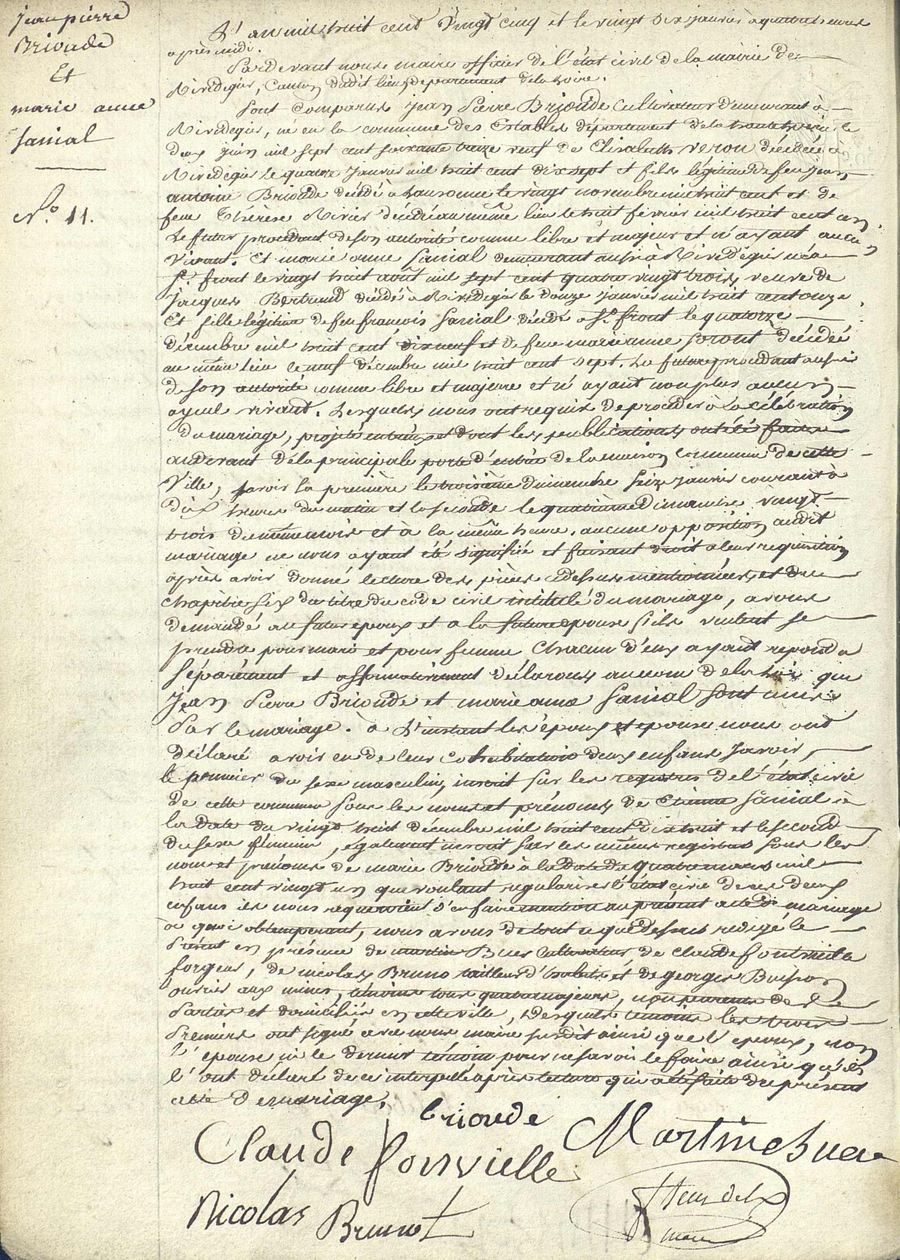 Jean pierre
Brioude
Et
marie anne
Sanial
N.° 11.
L'an mil huit cent vingt cinq et le vingt six janvier à quatre heures
après midi.
Pardevant nous maire officier de l'état civil de la mairie de
Rivedegier, Canton dudit lieu, département de la Loire.
Sont Comparus Jean Pierre Brioude Cultivateur demeurant à
Rivedegier, né en la commune des Estables département de la haute loire le
deux juin mil sept cent soixante treize veuf de Elisabeth veron décédée à
Rivedegier le quatre janvier mil huit cent dix sept et fils légitime de feu jean
antoine Brioude décédé à le vingt novembre mil huit cent et de
feue Therese Rivier décédée au même lieu le huit février mil huit cent un
Le futur procédant de son autorité comme libre et majeur et n'ayant aucun
vivant. Et marie anne Sanial demeurant aussi à Rivedegier née à
St. front le vingt huit août mil sept cent quatre vingt trois, veuve de
Jacques Bertrand décédé à Rivedegier le douze janvier mil huit cent onze
Et fille légitime de feu francois Sanial décédé à St. front le quatorze
décembre mil huit cent dix neuf et de feue marie anne décédée
au même lieu le neuf décembre mil huit cent sept. La future procédant aussi
de son autorité comme libre et majeure et n'ayant non plus aucun
ayeul vivant. Lesquels nous ont requis de procéder à la célébration
du mariage, projeté entr'eux et dont les publications ont été faites
au devant de la principale porte d'entrée de la maison commune de cette
Ville, savoir la première le troisième dimanche seize janvier courant à
dix heures du matin et la seconde le quatrième dimanche vingt
trois du même mois et à la même heure, aucune opposition audit
mariage ne nous ayant été signifiée et faisant droit à leur requisition
après avoir donné lecture des pièces cidessus mentionnées, et du
chapitre six du titre du code civil intitulé du mariage, avons
demandé au futur époux et à la future épouse s'ils veulent se
prendre pour mari et pour femme Chacun d'eux ayant répondu
séparément et affirmativement déclarons au nom de la loi que
Jean Pierre Brioude et marie anne Sanial sont unis
Par le mariage. à L'instant les époux et épouse nous ont
déclaré avoir eu de leur cohabitation deux enfans Savoir,
le premier du sexe masculin, inscrit sur les registres de l'état civil
de cette commune sous les noms et prénoms de Etienne Sanial à
la date du vingt huit décembre mil huit cent dix huit et le second
du sexe féminin, également inscrit sur les mêmes registres sous les
nom et prénoms de marie Brioude à la date du quatre mars mil
huit cent vingt un que voulant regulariser l'état civil de ces deux
enfans ils nous requeroient d'en faire mention au présent acte de mariage
à quoi obtemperant, nous avons de tout ce que dessus redigé le
Présent en présence de martin Buer Cultivateur, de Claude fontvieille
forgeur, de nicolas Bruno tailleur d'habits et de georges Buisson
ouvrier aux mines, témoins tous quatre majeurs, non parents des
Parties et domiciliés en cette ville, desquels témoins les trois
Premiers ont signé avec nous maire susdit ainsi que l'époux, non
l'épouse ni le dernier témoin pour ne savoir le faire ainsi qu'ils
l'ont déclaré de ce interpellé après lecture qui a été faite du présent
acte de mariage.
brioude
Claude fonvielle
Martin Buer
Nicolas Brunot
maire